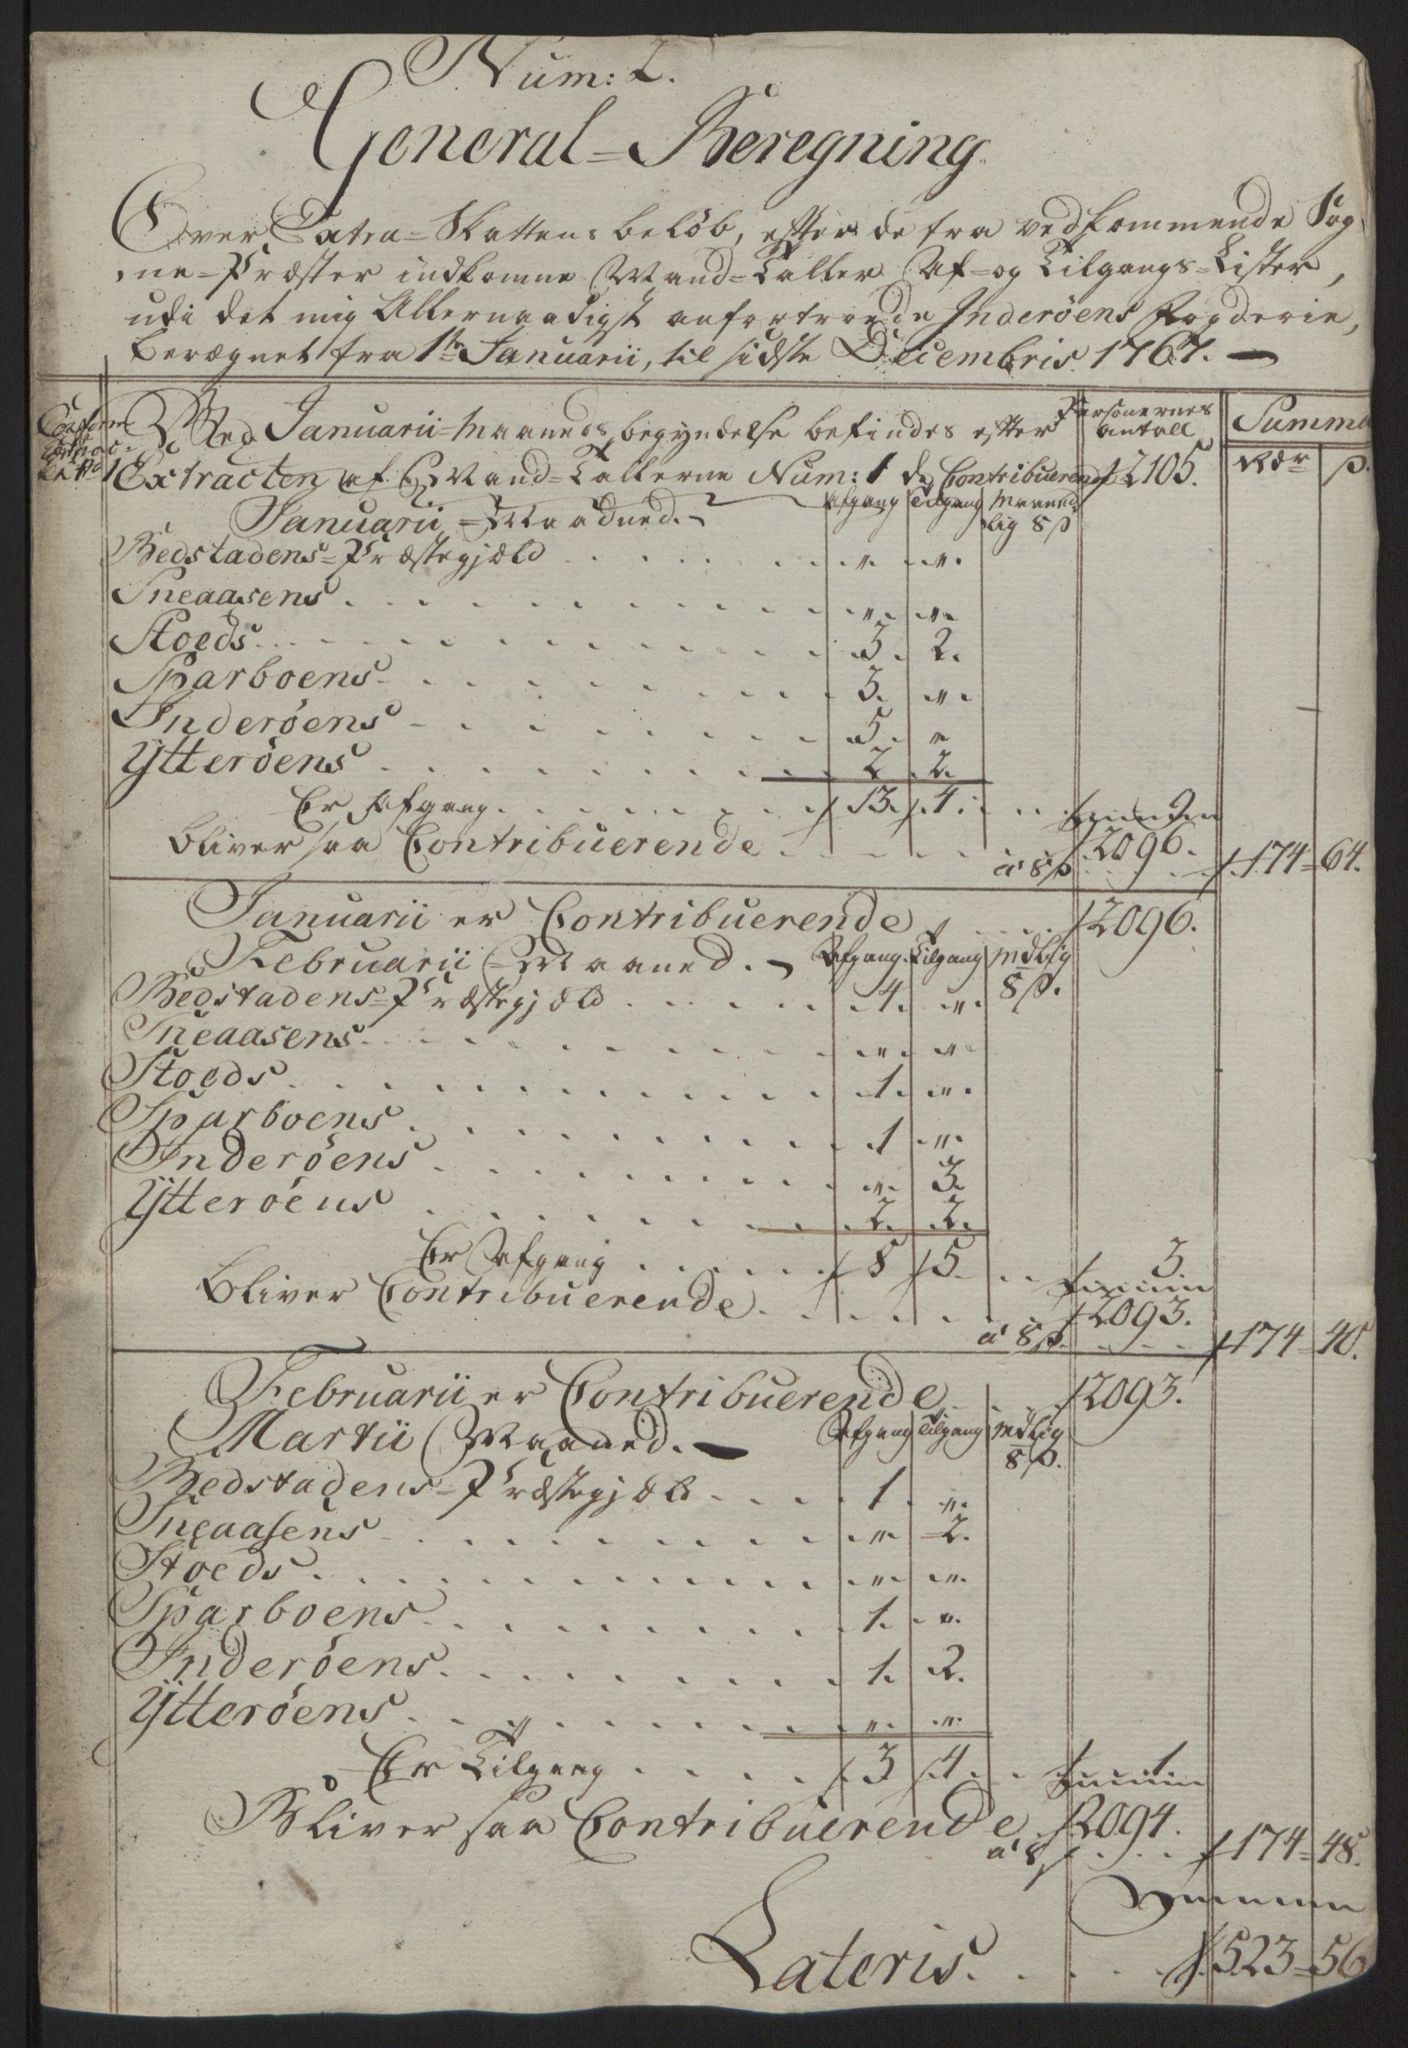 Num: 2.
General=Beregning
Over Extra=Skattens beløb, efter de fra vedkommende Sog,
ne=Præster indkomne Mand=Taller Af=og Tilgangs=Lister,
udi det mig Allernaadigst anfortroede Inderöens Fogderie,
beregnet fra 1ste Januarii, til sidste Decembris 1767.
Ved Januarii=Maaneds begyndelse befindes efter Personernes antall Summa
Extracten af Mand=Tallerne Num: 1 de Contribuerend 2105. Rdr ß.
Januarii=Maaned. Afgang Tilgang Maaned=lig 8 ß
Bedstadens=Præstegjæld . . . " . "
Sneaasens . . . " . "
Stoeds . . . 3. 2.
Sparboens . . . 3. "
Inderöens . . . 5. "
Ytteröens . . . 2 2.
Er Afgang . . . 13. 4. . . 9
bliver saa Contribuerende . . . 2096.
a' 8 ß . . . 174= 64.
Januarii er Contribuerende . . . 2096.
Februarii=Maaned. Afgang. Tilgang Mdlig 8 ß.
Bedstadens=Præstegjæld . . . 4. "
Sneaasens . . . " . "
Stoeds . . . 1. "
Sparboens . . . 1 . "
Inderöens . . . " . 3.
Ytteröens . . . 2. 2.
Er Afgang . . . 8 5. . . 3.
bliver Contribuerende . . . 2093.
a' 8 ß. . . . 174= 40.
Februarii er Contribuerende . . . 2093.
Martii Maaned. Afgang Tilgang Mdlig 8 ß.
Bedstadens=Præstegjæld . . . 1. "
Sneaasens . . . " 2.
Stoeds . . . " . "
Sparboens . . . 1. "
Inderöens . . . 1. 2.
Ytteröens . . . " . "
Er Tilgang . . . 3 4. . . 1
Bliver saa Contribuerende 2094.
a' 8 ß . . . 174= 48.
Summa
Lateris. . . . 523= 56